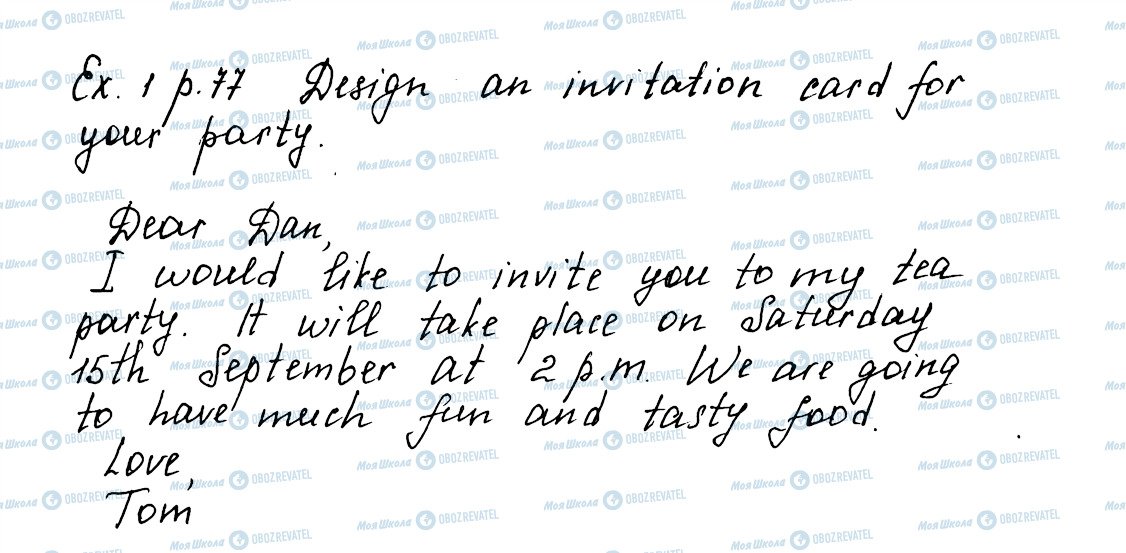 Ex. 1 p. 77 Design an invitation card for
your party.
Dear Dan,
I would like to invite you to my tea
party. It will take place on Saturday
15th September at 2 p.m. We are going
to have much fun and tasty food.
Love,
Tom
Моя Школа OBOZREVATEL